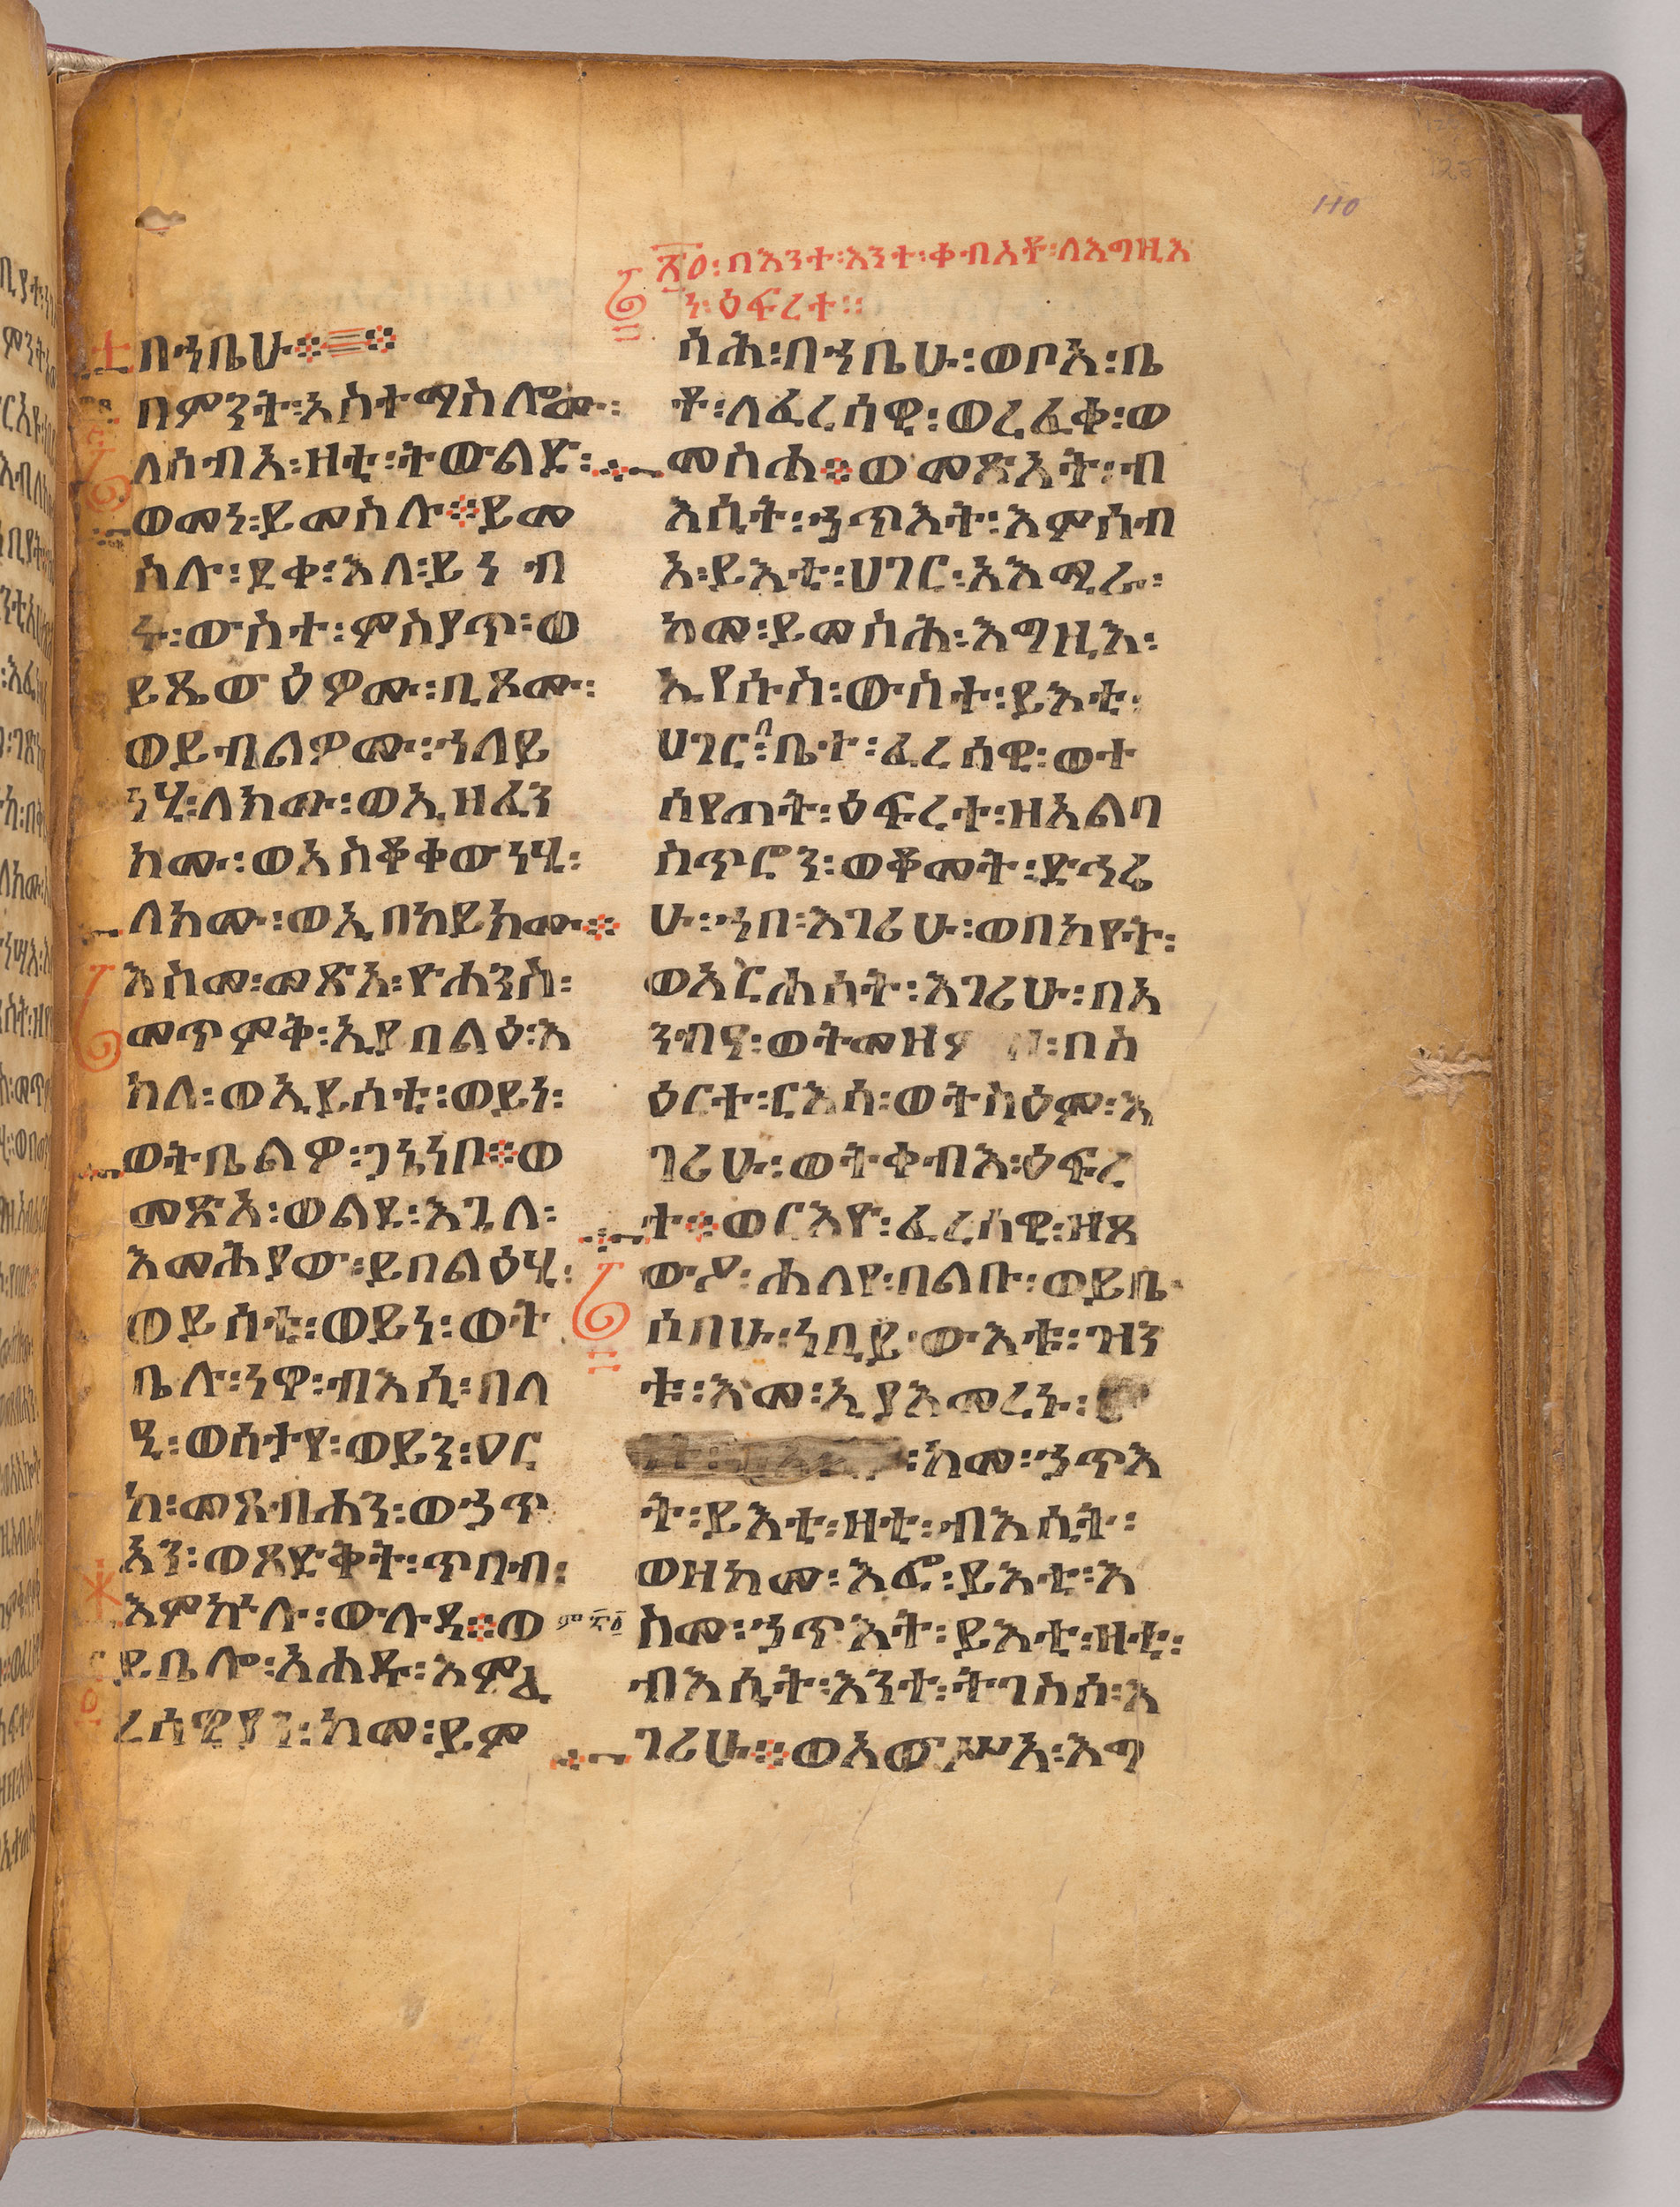 በኀቤሁ።
በምንት፡አስተማስሎሙ፡
ለሰብአ፡ዛቲ፡ትውልድ፡
ወመኑ፡ይመስሉ።ይመ
ስሉ፡ደቀ፡እለ፡ይነብ
ሩ፡ውስተ፡ምስያጥ፡ወ
ይጼውዕዎሙ፡ቢጾሙ፡
ወይብልዎሙ፡ኀለይ
ነሂ፡ለክሙ፡ወኢዘፈን
ክሙ፡ወአስቆቀውነሂ፡
ለክሙ፡ወኢበከይክሙ።
እስመ፡መጽአ፡ዮሐንስ፡
መጥምቅ፡ኢየበልዕ፡እ
ክለ፡ወኢይሰቲ፡ወይነ፡
ወትቤልዎ፡ጋኔነቦ።ወ
መጽአ፡ወልደ፡እጓለ፡
እመሕያው፡ይበልዕሂ፡
ወይሰቲ፡ወይነ፡ወት
ቤሉ፡ነዋ፡ብእሲ፡በላ
ዒ፡ወሰታዪ፡ወይን፡ዐር
ከ፡መጸብሐን፡ወኃጥ
አን፡ወጸድቅት፡ጥበብ፡
እምኵሉ፡ውሉዳ።ወ
ይቤሎ፡አሐዱ፡እምፈ
ረሳዊያን፡ከመ፡ይም
፸ዐ፡በእንተ፡እንተ፡ቀብአቶ፡ለእግዚእ
ነ፡ዕፍረተ።
ሳሕ፡በኀቤሁ፡ወቦአ፡ቤ
ቶ፡ለፈረሳዊ፡ወረፈቀ፡ወ
መስሐ።ወመጽአት፡ብ
እሲት፡ኃጥእት፡እምሰብ
አ፡ይእቲ፡ሀገር፡አእሚራ፡
ከመ፡ይመስሕ፡እግዚእ፡
ኢየሱስ፡ውስተ፡ይእቲ፡
ሀገር፡በቤተ፡ፈረሳዊ፡ወተ
ሳየጠት፡ዕፍረተ፡ዘአልባ
ስጥሮን፡ወቆመት፡ድኅሬ
ሁ፡ኀበ፡እገሪሁ፡ወበከየት፡
ወአርሐሰት፡እገሪሁ፡በአ
ንብዓ፡ወትመዘምዝ፡በስ
ዕርተ፡ርእሳ፡ወትስዕም፡እ
ገሪሁ፡ወትቀብእ፡ዕፍረ
ተ።ወርእዮ፡ፈረሳዊ፡ዘጸ
ውዖ፡ሐለየ፡በልቡ፡ወይቤ
ሶበሁ፡ነቢይ፡ውእቱ፡ዝን
ቱ፡እመ፡ኢያእመረኑ፡
፡ከመ፡ኃጥእ
ት፡ይእቲ፡ዛቲ፡ብእሲት፡
ወዘከመ፡እፎ፡ይእቲ፡እ
ስመ፡ኃጥእት፡ይእቲ፡ዛቲ፡
ብእሲት፡እንተ፡ትገሰሰ፡እ
ገሪሁ።ወአውሥአ፡እግ
110